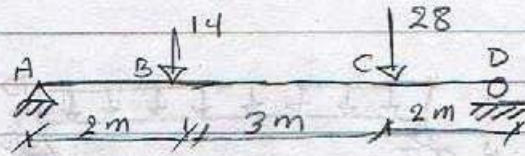 14 28
A B C D
2m 3m 2m